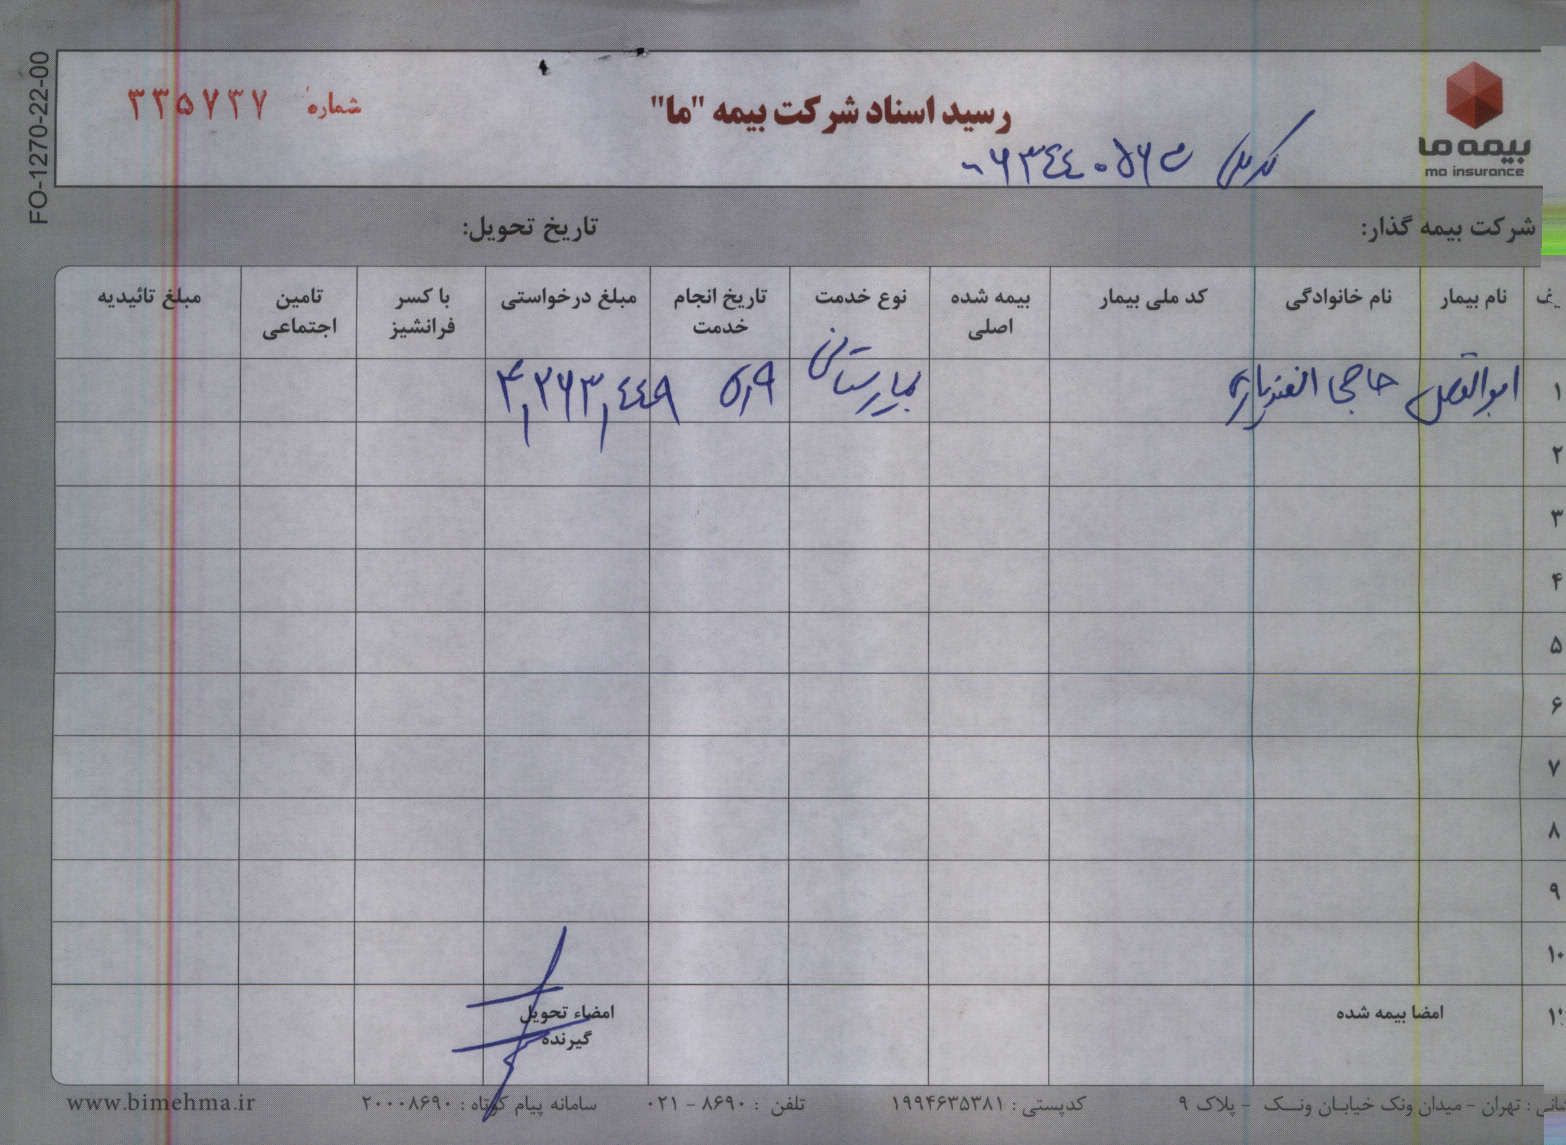 FO-1270-22-00
رسید اسناد شرکت بیمه "ما"
شماره ۳۳۵۷۳۷
بیمه ما
ma insurance
کد ملی
شرکت بیمه گذار: تاریخ تحویل:
نام بیمار نام خانوادگی کد ملی بیمار بیمه شده اصلی نوع خدمت تاریخ انجام خدمت مبلغ درخواستی با کسر فرانشیز تامین اجتماعی مبلغ تائیدیه
۱ ابوالفضل حاجی بیمارستانی ۴,۲۶۳,۴۴۹
۲
۳
۴
۵
۶
۷
۸
۹
۱۰
امضا بیمه شده امضاء تحویل گیرنده
تهران - میدان ونک خیابان ونک - پلاک ۹ کدپستی : ۱۹۹۴۶۳۵۳۸۱ تلفن : ۸۶۹۰ - ۰۲۱ سامانه پیام کوتاه : ۲۰۰۰۸۶۹۰ www.bimehma.ir